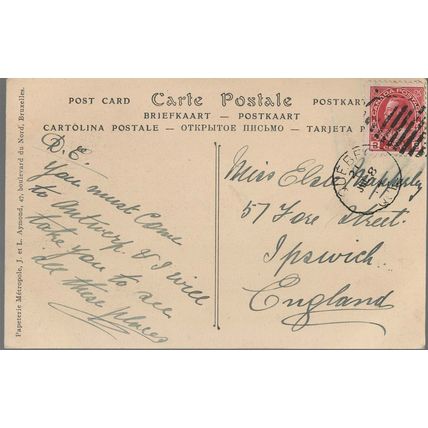 POST CARD Carte Postale POSTKART
BRIEFKAART — POSTKAART
CARTOLINA POSTALE — ОТКРЫТОЕ ПИСЬМО — TARJETA P
CANADA POSTAGE
Papeterie Métropole, J. et L. Aymond, 47, boulevard du Nord, Bruxelles.
D. E.
You must come
to Antwerp & I will
take you to see
all these places
Miss Elsie
57 Fore Street.
Ipswich
England
QUEBEC